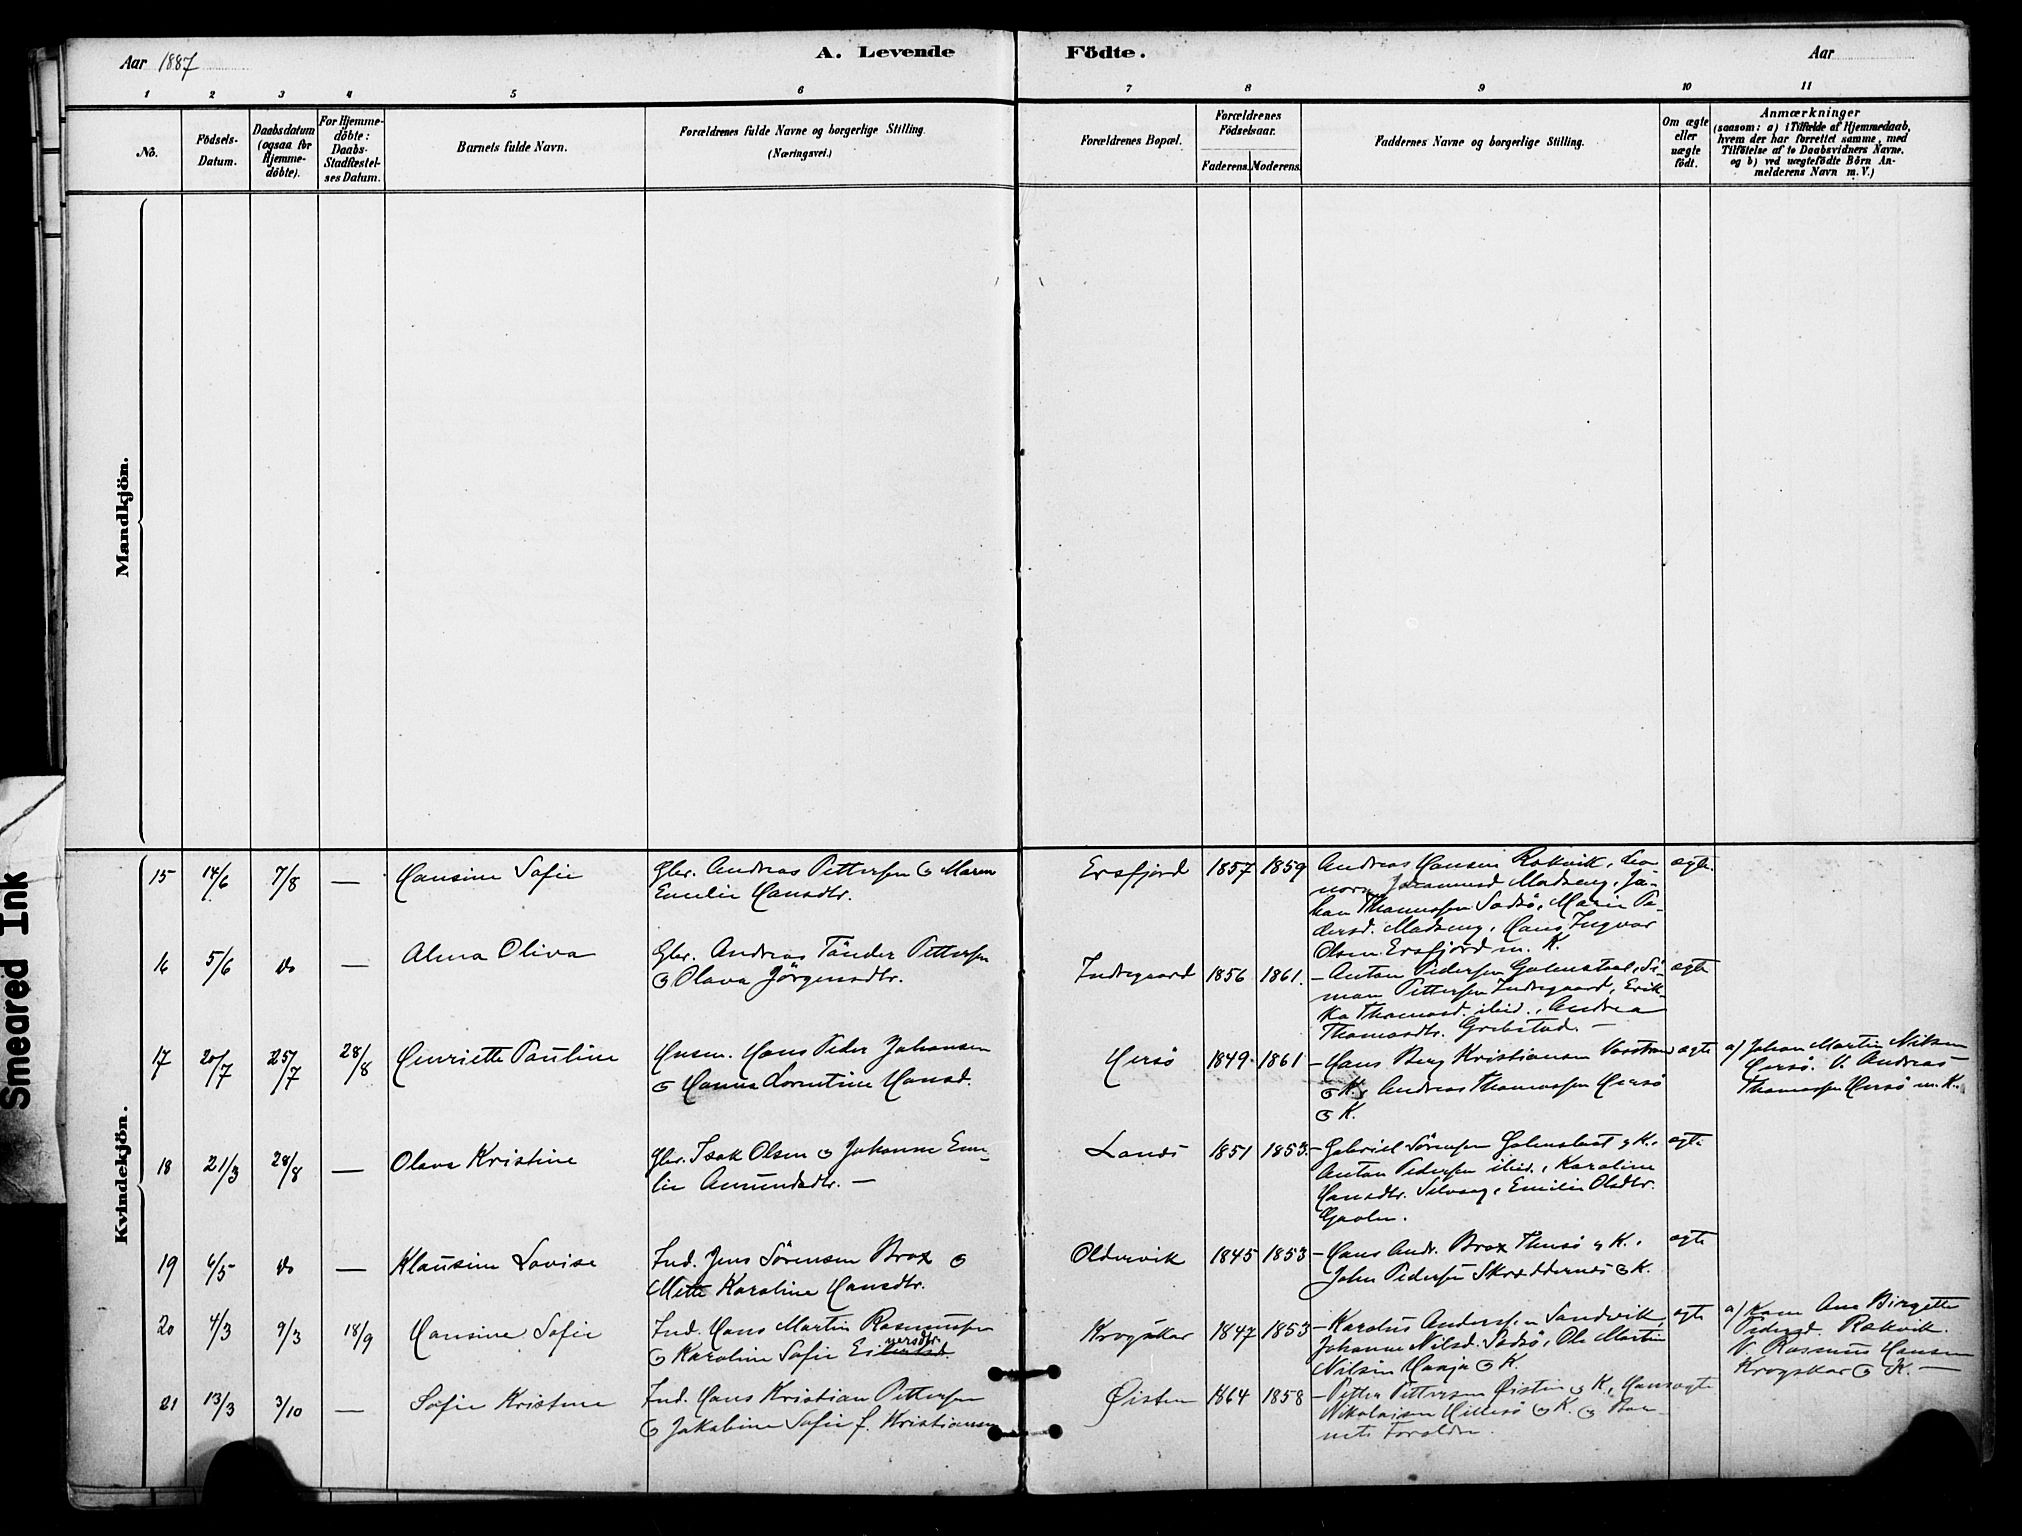 Aar 1887
A. Levende Födte.
Aar
1 2 3 4 5 6 7 8 9 10 11
No.
Födsels-
Datum.
Daabsdatum
(ogsaa for
Hjemme-
döbte).
For Hjemme-
döbte:
Daabs-
Stadfæstel-
ses Datum.
Barnets fulde Navn.
Forældrenes fulde Navne og borgerlige Stilling.
(Næringsvei.)
Forældrenes Bopæl.
Forældrenes
Födselsaar.
Faderens. Moderens.
Faddernes Navne og borgerlige Stilling.
Om ægte
eller
uægte
födt.
Anmærkninger
(saasom: a) i Tilfælde af Hjemmedaab,
hvem der har forrettet samme, med
Tilföielse af to Daabsvidners Navne.
og b) ved uægtefödte Börn An-
melderens Navn m. V.)
Mandkjön.
Kvindekjön.
Smeared Ink
15 14/6 7/8 — Hansine Sofie
Gbr. Andreas Pettersen & Maren
Emelie Hansdtr.
Ersfjord 1857 1859
Andreas Hansen Rakvik, Leo-
nora Johannesd. Madseng, Jo-
han Thomassen Sadsö, Marie Pe-
dersd. Madseng, Hans Ingvar
Olsen Ersfjord m. K.
ægte.
16 5/6 do — Alma Oliva
Gbr. Andreas Tönder Pettersen
& Olava Jörgensdtr.
Indregaard 1856 1861.
— Anton Pedersen Golmstaal, Si-
mon Pettersen Indregaard, Erik-
ka Thomasd. ibid., Andrea
Thomasdtr. Grebstad. —
ægte
17 20/7 25/7 28/8 Henriette Pauline
Husm. Hans Peder Johansen
& Hanna Lorentine Hansd.
Hersö 1849 1861
— Hans Berg Kristiansen Vorstrand
& K., Andreas Thomassen Hersö
& K.
ægte
a/ Johan Martin Nilsen
Hersö. V. Andreas
Thomassen Hersö m. K.
18 21/3 28/8 — Olava Kristine
Gbr. Isak Olsen & Johanne Eme-
lie Amundsdtr. —
Lanes 1851 1853.
— Gabriel Sörensen Golmstaal & K.,
Anton Pedersen ibid., Karoline
Hansdtr. Selvaag, Emelie Olsdtr.
ægte
19 6/5 do — Klausine Lovise
Ind. Jens Sörensen Brox &
Mette Karoline Hansdtr.
Oldervik 1845 1853
— Hans Andr. Brox & K.,
John Pedersen Skræddernes & K.
ægte
20 4/3 9/3 18/9 Hansine Sofie
Ind. Hans Martin Rasmussen
& Karoline Sofie Ei nersdtr.
Krogskar 1847 1853
— Karolus Andersen Sandvik,
Johanne Nilsd. Sadsö, Ole Martin
Nilsen Hanja & K.
ægte
a/ Kone Ane Birgette
Pedersd. Rakvik.
V. Rasmus Hansen
Krogskar & K. —
21 13/3 3/10 — Sofie Kristine
Ind. Hans Kristian Pettersen
& Jakobine Sofie f. Kristiansen
Öisten 1864 1858
— Petter Pettersen Öisten & K., Hans
Nikolaisen Hillesö & K. & Bar-
nets Foreldre.
ægte